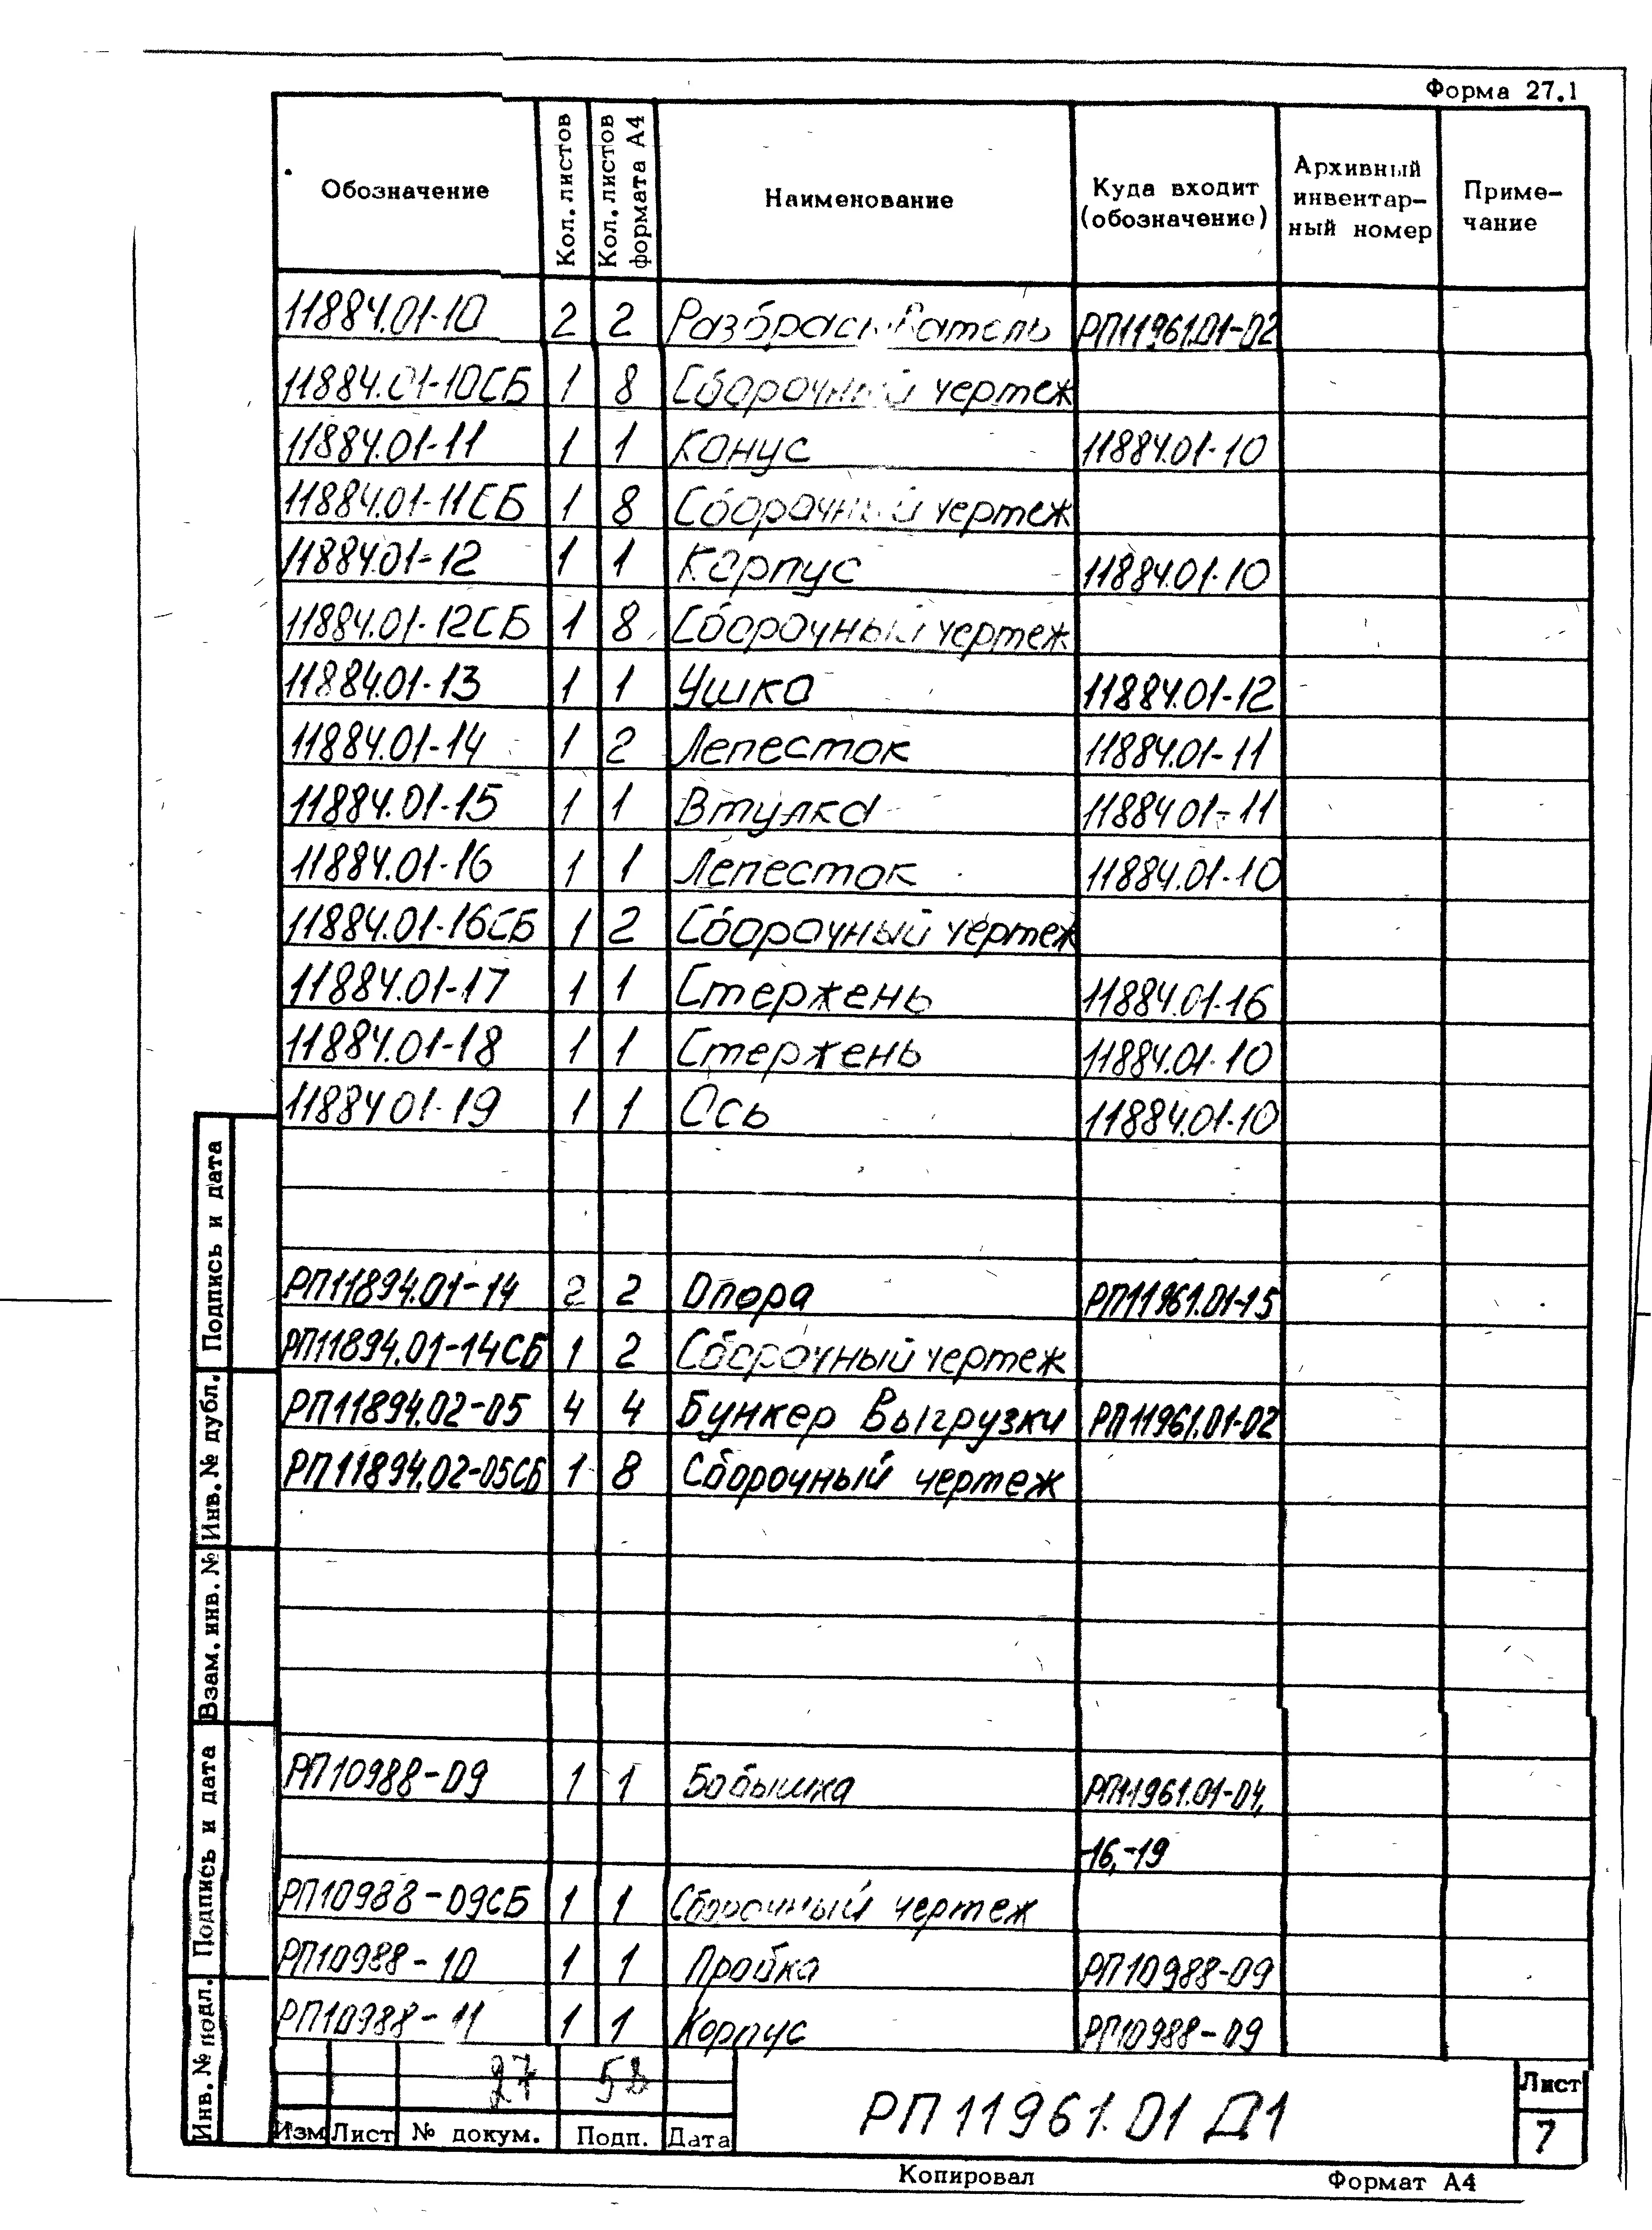 Форма 27.1
Обозначение
Кол. листов
Кол. листов формата А4
Наименование
Куда входит (обозначение)
Архивный инвентар- ный номер
Приме- чание
11884.01-10 2 2 Разбрасыватель РП11961.01-02
11884.01-10СБ 1 8 Сборочный чертеж
11884.01-11 1 1 Конус 11884.01-10
11884.01-11СБ 1 8 Сборочный чертеж
11884.01-12 1 1 Корпус 11884.01-10
11884.01-12СБ 1 8 Сборочный чертеж
11884.01-13 1 1 Ушко 11884.01-12
11884.01-14 1 2 Лепесток 11884.01-11
11884.01-15 1 1 Втулка 11884.01-11
11884.01-16 1 1 Лепесток 11884.01-10
11884.01-16СБ 1 2 Сборочный чертеж
11884.01-17 1 1 Стержень 11884.01-16
11884.01-18 1 1 Стержень 11884.01-10
11884.01-19 1 1 Ось 11884.01-10
РП11894.01-14 2 2 Опора РП11961.01-15
РП11894.01-14СБ 1 2 Сборочный чертеж
РП11894.02-05 4 4 Бункер выгрузки РП11961.01-02
РП11894.02-05СБ 1 8 Сборочный чертеж
РП10988-09 1 1 Бобышка РП11961.01-04,
-16,-19
РП10988-09СБ 1 1 Сборочный чертеж
РП10988-10 1 1 Пробка РП10988-09
РП10988-11 1 1 Корпус РП10988-09
Подпись и дата
Инв. № дубл.
Взам. инв. №
Подпись и дата
Инв. № подл.
27 58
Изм Лист № докум. Подп. Дата
РП11961.01 Д1
Лист
7
Копировал
Формат А4